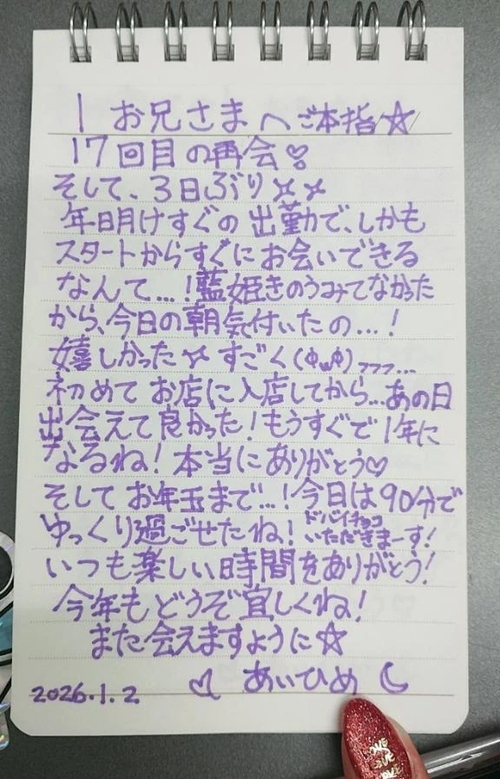 I お兄さまへ ご本指☆
17回目の再会♡
そして、3日ぶり
年明けすぐの出勤で、しかも
スタートからすぐにお会いできる
なんて…!藍姫きのうみてなかった
から、今日の朝気付いたの…!
嬉しかった すごく
初めてお店に入店してから…あの日
出会えて良かった!もうすぐで1年に
なるね!本当にありがとう♡
そしてお年玉まで…!今日は90分で
ゆっくり過ごせたね!ドバイチョコいただきまーす!
いつも楽しい時間をありがとう!
今年もどうぞ宜しくね!
また会えますように☆
♡ あいひめ ☾
2026.1.2